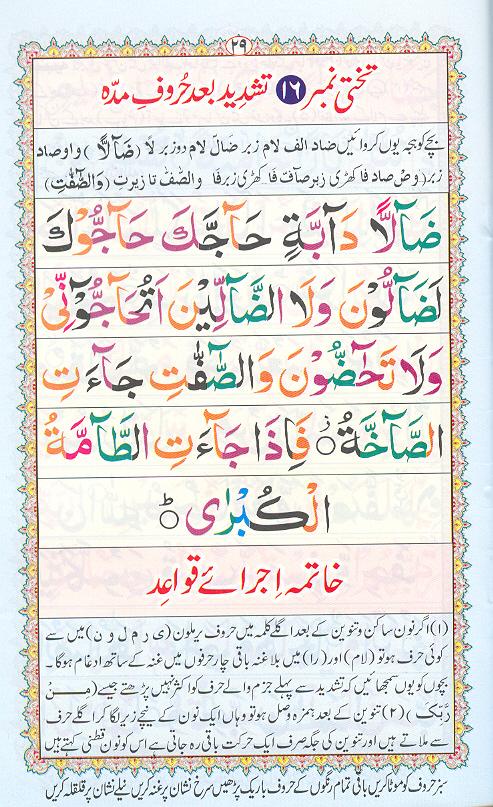 ۲۹
تختی نمبر ۱۶ تشدید بعد حُروفِ مدّہ
بچے کو ہجے یوں کروائیں ضاد الف لام زبر ضَالّ لام دو زبر لاً (ضَآلًّا) واو صاد
زبر (وَصْ صاد فا کھڑی زبر صآفّ فا کھڑی زبر فا والصّٰفّٰ تا زیر تِ (وَالصّٰٓفّٰتِ)
ضَآلًّا دَآبَّةٍ حَآجَّكَ حَآجُّوْكَ
لَضَآلُّوْنَ وَلَا الضَّآلِّيْنَ اَتُحَآجُّوْٓنِّيْ
وَلَا تَحٰٓضُّوْنَ وَالصّٰٓفّٰتِ جَآءَتِ
الصَّآخَّةُ ۝ فَاِذَا جَآءَتِ الطَّآمَّةُ
الْكُبْرٰى ۝ ط
خاتمہ اِجرائے قواعِد
(۱) اگر نون ساکن و تنوین کے بعد اگلے کلمہ میں حروف یرملون (ی ر م ل و ن) میں سے
کوئی حرف ہو تو (لام) اور (را) میں بلا غنہ باقی چار حرفوں میں غنہ کے ساتھ ادغام ہوگا۔
بچوں کو یوں سمجھائیں کہ تشدید سے پہلے جزم والے حرف کو اکثر نہیں پڑھتے جیسے (مِنْ
رَّبِّكَ) (۲) تنوین کے بعد ہمزہ وصل ہو تو وہاں ایک نون کے نیچے زیر لگا کر اگلے حرف
سے ملاتے ہیں اور تنوین کی جگہ صرف ایک حرکت باقی رہ جاتی ہے اس کو نون قطنی کہتے ہیں
سبز حرف کو موٹا کریں باقی تمام رنگوں کے حروف باریک پڑھیں سرخ نشان پر غنہ کریں نیلے نشان پر قلقلہ کریں